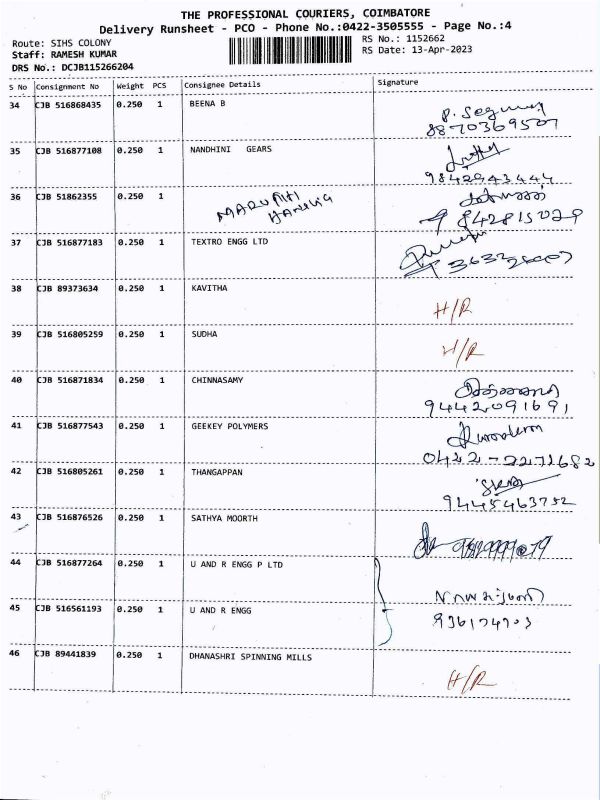 THE PROFESSIONAL COURIERS, COIMBATORE
Delivery Runsheet - PCO - Phone No.:0422-3505555 - Page No.:4
Route: SIHS COLONY
RS No.: 1152662
Staff: RAMESH KUMAR
RS Date: 13-Apr-2023
DRS No.: DCJB115266204
S No Consignment No Weight PCS Consignee Details Signature
34 CJB 516868435 0.250 1 BEENA B
8870369507
35 CJB 516877108 0.250 1 NANDHINI GEARS
9842943444
36 CJB 51862355 0.250 1 MARUTHI
37 CJB 516877183 0.250 1 TEXTRO ENGG LTD
38 CJB 89373634 0.250 1 KAVITHA H/R
39 CJB 516805259 0.250 1 SUDHA H/R
40 CJB 516871834 0.250 1 CHINNASAMY
9442091691
41 CJB 516877543 0.250 1 GEEKEY POLYMERS
0422-2271682
42 CJB 516805261 0.250 1 THANGAPPAN
9445463752
43 CJB 516876526 0.250 1 SATHYA MOORTH
44 CJB 516877264 0.250 1 U AND R ENGG P LTD
45 CJB 516561193 0.250 1 U AND R ENGG
46 CJB 89441839 0.250 1 DHANASHRI SPINNING MILLS H/R